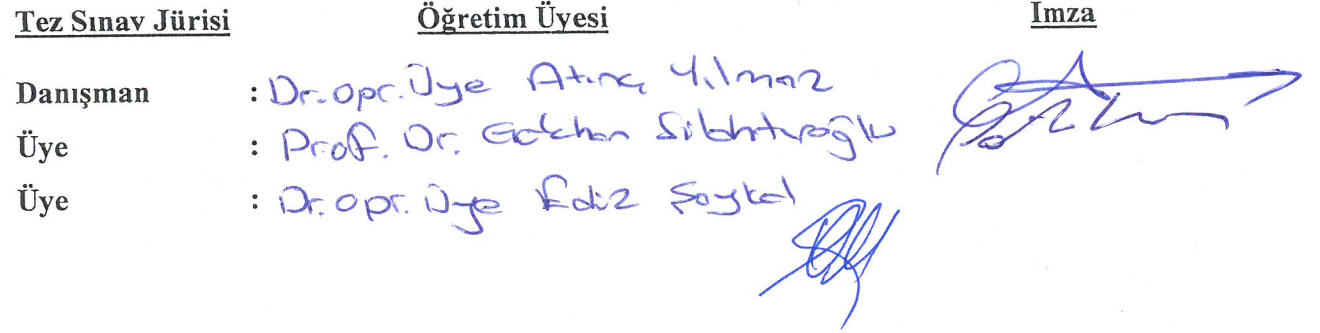 Tez Sınav Jürisi Öğretim Üyesi Imza
Danışman : Dr. opr. Üye Atınç Yılmaz
Üye : Prof. Dr. Gökhan Silahtaroğlu
Üye : Dr. opr. Üye Ediz Şaykol